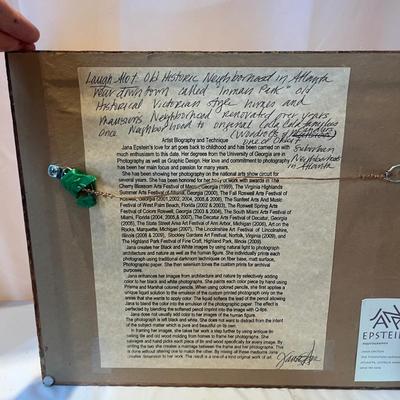 Laugh Alot Old Historic Neighborhood in Atlanta
near downtown called "Inman Park" old
Historical Victorian style homes and
mansions Neighborhood renovated over years
once Neighborhood to original Coca Cola families
(Woodruffs
one of Oldest
Suburban
Neighborhoods
in Atlanta
Artist Biography and Technique
Jana Epstein's love for art goes back to childhood and has been carried on with
much enthusiasm to this date. Her degrees from the University of Georgia are in
Photography as well as Graphic Design. Her love and commitment to photography
has been her main focus and passion for many years.
She has been showing her photography on the national arts show circuit for
several years. She has been honored for her body of work with awards in The
Cherry Blossom Arts Festival of Macon, Georgia (1999), The Virginia Highlands
Summer Arts Festival of Atlanta, Georgia (2000), The Fall Roswell Arts Festival of
Roswell, Georgia (2001,2002, 2004, 2005,& 2006), The Sunfest Arts And Music
Festival of West Palm Beach, Florida (2002 & 2003), The Roswell Spring Arts
Festival of Colors Roswell, Georgia (2003 & 2004), The South Miami Arts Festival of
Miami, Florida (2004, 2006,& 2007), The Decute Arts Festival of Decatur, Georgia
(2005), The State Street Area Art Festival of Ann Arbor, Michigan (2005), Art on the
Rocks, Marquette, Michigan (2007), The Lincolnshire Art Festival of Lincolnshire,
Illinois (2008 & 2009), Stockley Gardens Art Festival, Norfolk, Virginia (2009), and
The Highland Park Festival of Fine Craft, Highland Park, Illinois (2009).
Jana creates her Black and White images by using natural light to photograph
architecture and nature as well as the human figure. She individually prints each
photograph using traditional darkroom techniques on fiber base, matt surface,
Photographic paper. She then selenium tones the custom prints for archival
purposes.
Jana enhances her images from architecture and nature by selectively adding
color to her black and white photographs. She paints each color piece by hand using
Prisma and Marshal colored pencils. When using colored pencils, she first applies a
unique liquid solution to the emulsion of the custom printed photograph only on the
areas that she wants to apply color. The liquid softens the lead of the pencil allowing
Jana to blend the color into the emulsion of the photographic paper. The effect is
perfected by blending the softened pencil imprint into the image with Q-tips.
Jana does not usually add color to her images of the human figure.
The photograph is left black and white. She does not want to distract from the intent
of the subject matter which is pure and beautiful on its own.
In framing her images, she takes her work a step further by using antique tin
ceiling tile and old wood molding from homes to frame her photographs. She
salvages and hand picks each piece of tin and wood specifically for every image. By
uniting the two she creates a marriage between the frame and her photographs. This
is done without altering one to match the other. By mixing all these mediums Jana
creates dimension to her work. The result is a one of a kind original work of art.
EPSTEIN